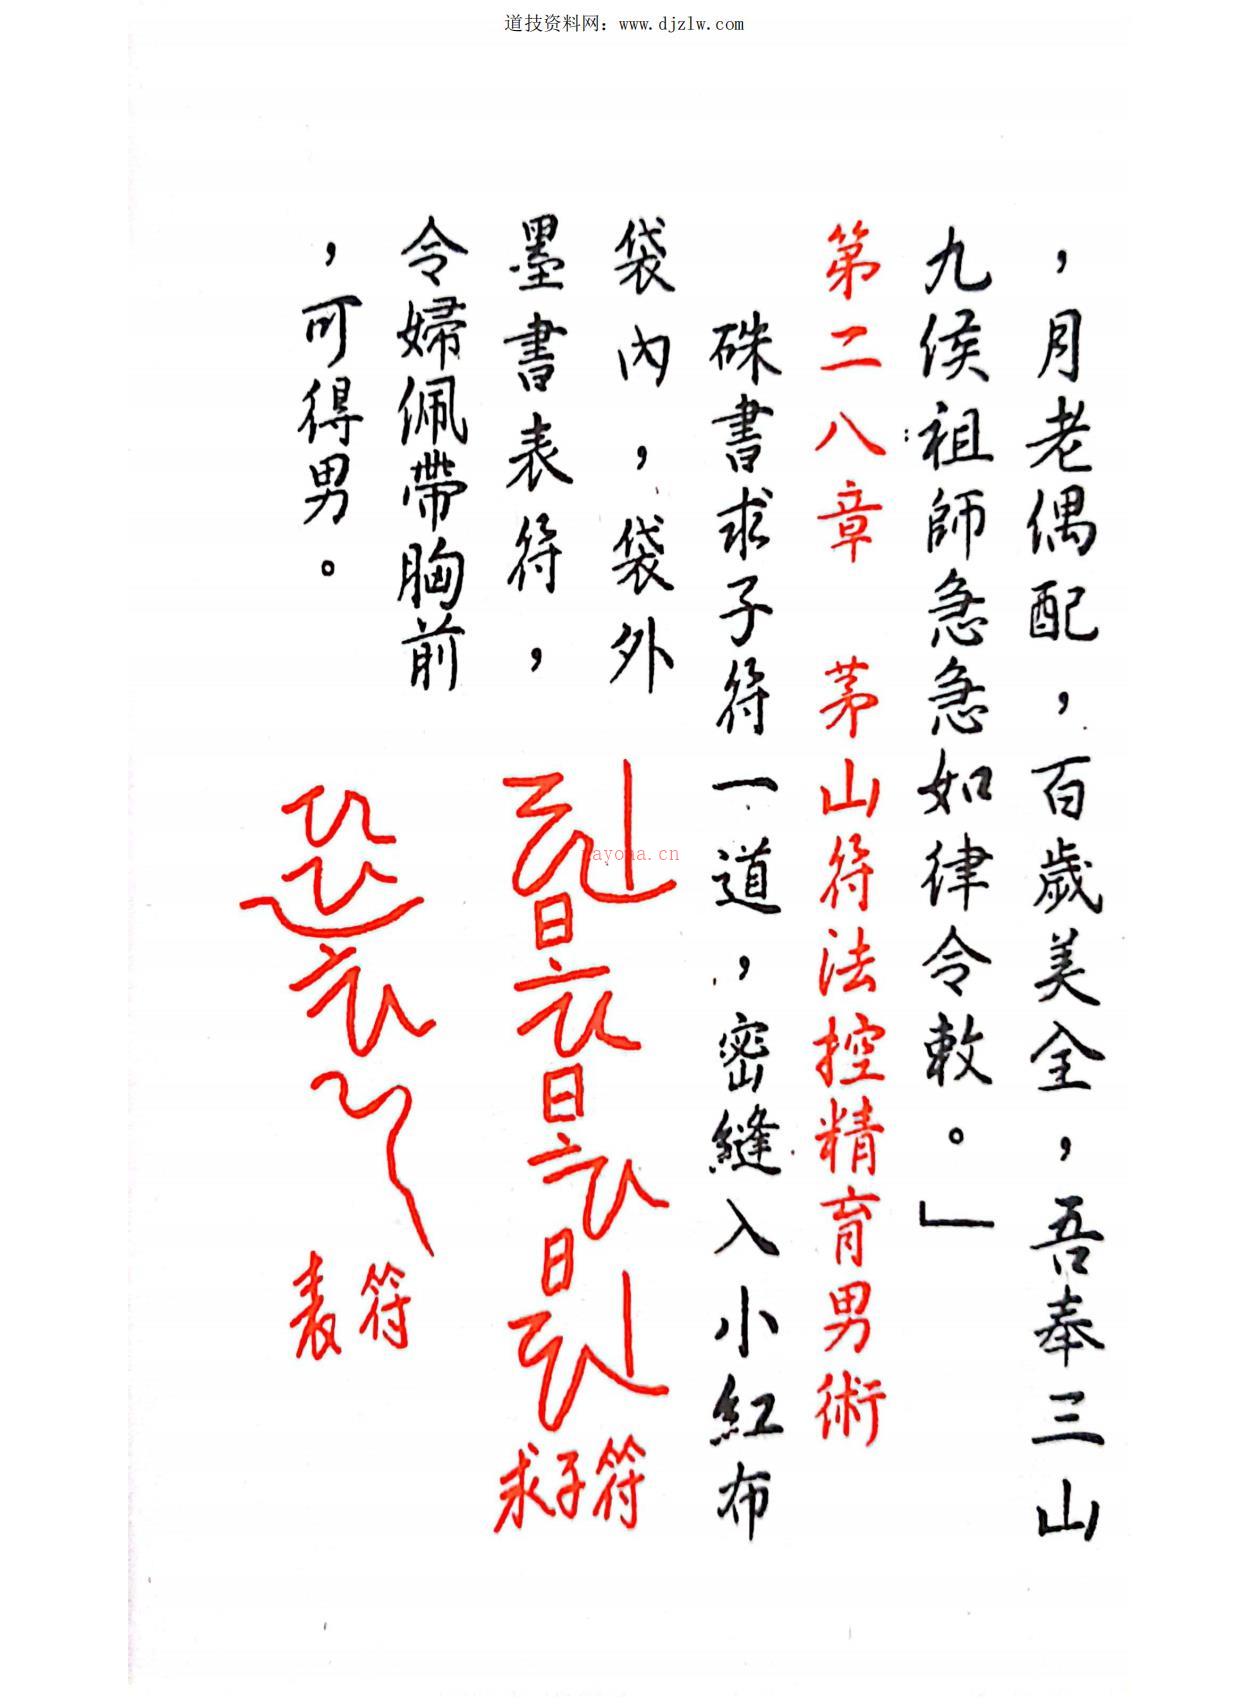 道技资料网：www.djzlw.com
，月老偶配，百歲美全，吾奉三山
九侯祖師急急如律令敕。」
第二八章　茅山符法控精育男術
硃書求子符一道，密縫入小紅布
袋內，袋外
墨書表符，
令婦佩帶胸前
，可得男。
求子符
表符